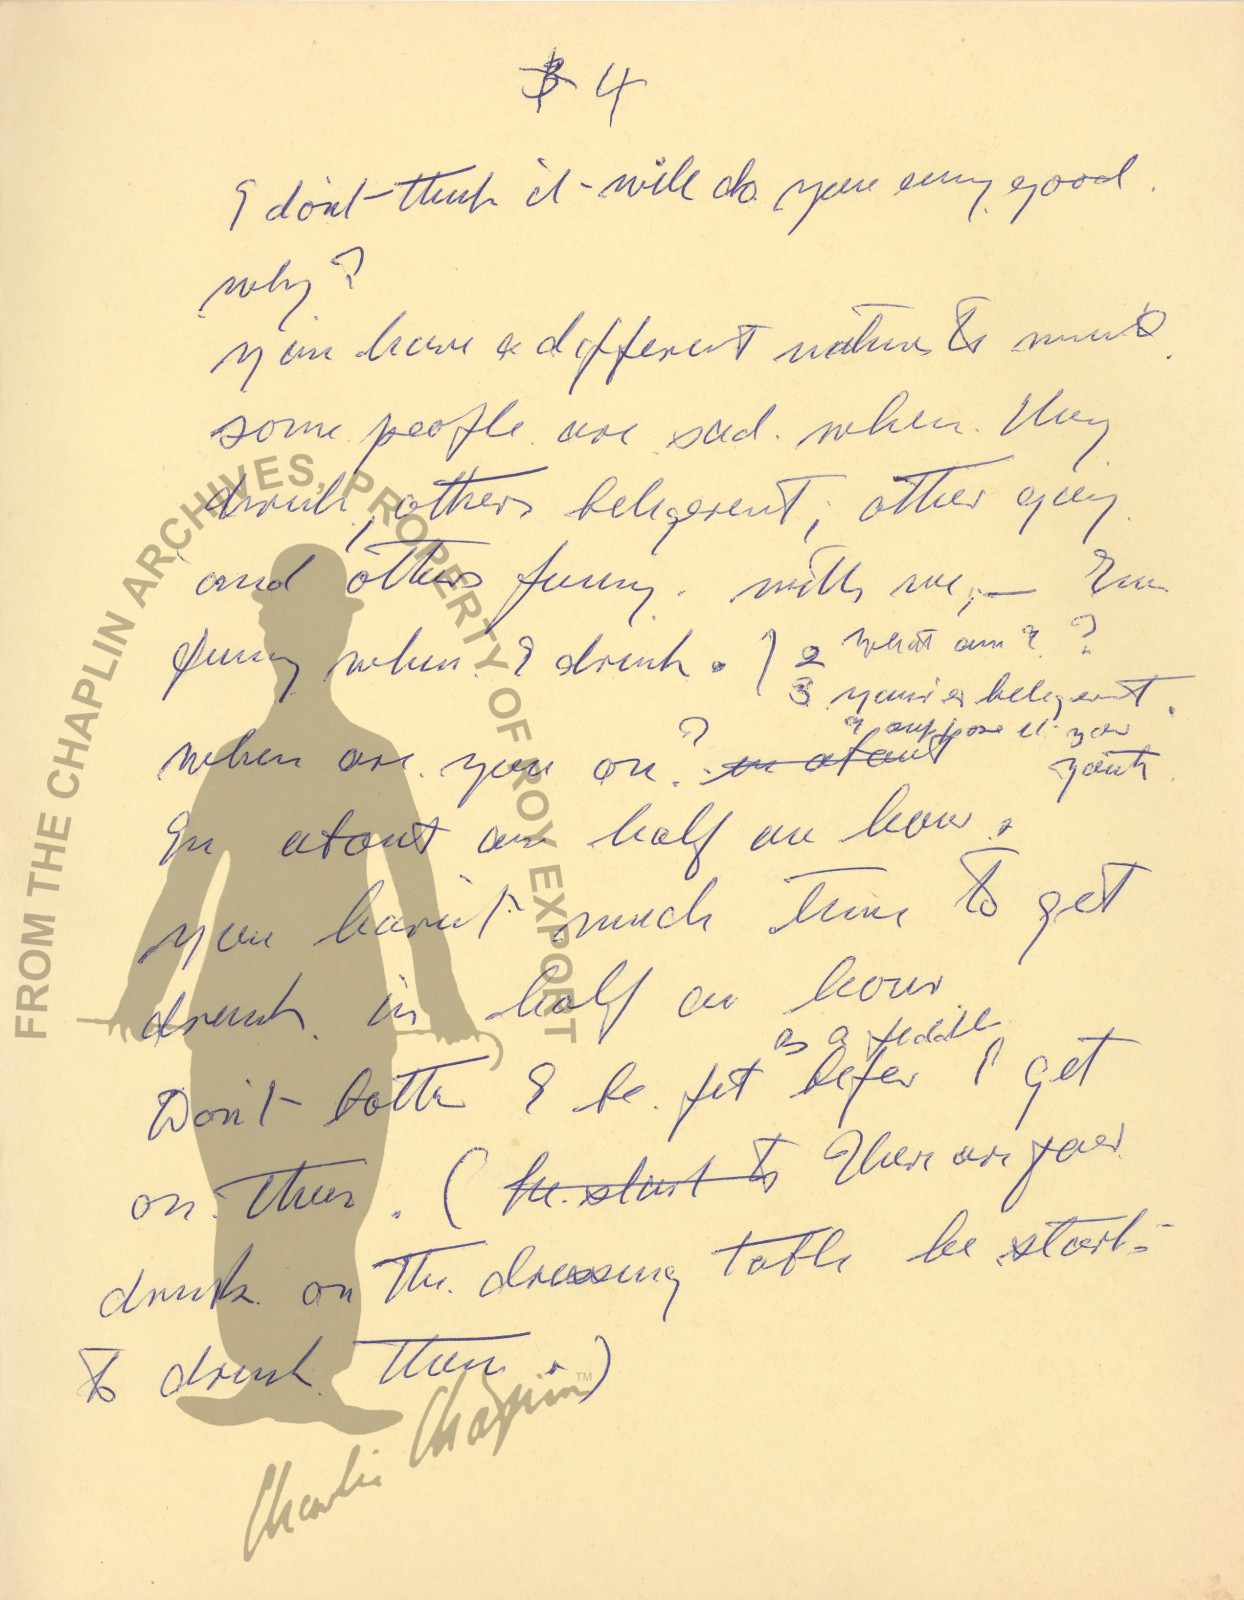 4
I don't think it will do you any good.
why?
you have a different nature to mine.
some people are sad when they
drink, others beligerent, other gay
and others funny. with me, — I'm
funny when I drink.
2 what am I?
3 your's beligerent.
I suppose it your
youth.
when are you on? in about
In about an half an hour.
you havn't much time to get
drunk in half an hour
as a feddle
Don't bother I be fit befer I get
on there. ( he start to There are four
drinks on the dressing table he start-
to drink them.)
FROM THE CHAPLIN ARCHIVES, PROPERTY OF ROY EXPORT
Charlie Chaplin™